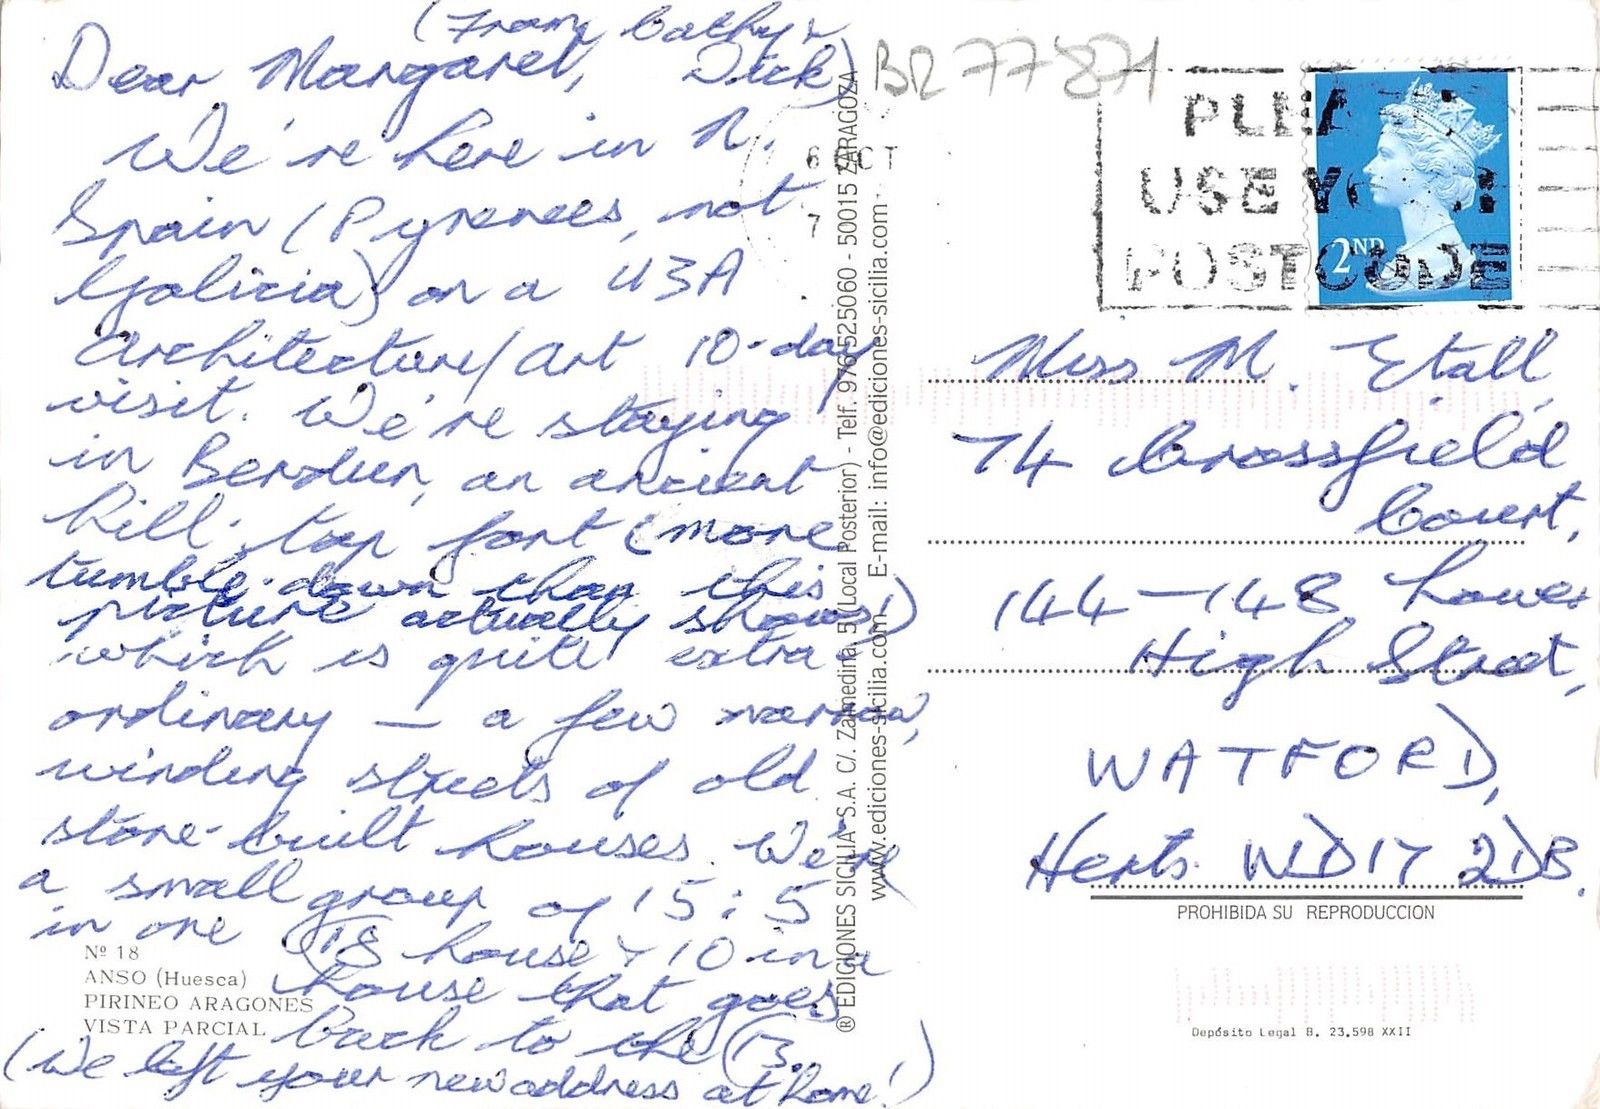 (From Cathy &
Dear Margaret, Dick)
We're here in N.
Spain (Pyrenees, not
Galicia) on a U3A
architecture/art 10-day
visit. We're staying
in Berdun, an ancient
hill-top fort (more
tumble-down than this
picture actually shows!)
which is quite extra-
ordinary — a few narrow,
winding streets of old
stone-built houses. We're
a small group of 15: 5
in one C18 house & 10 in a
house that goes
back to the C13.
(We left your new address at home!)
Nº 18
ANSO (Huesca)
PIRINEO ARAGONES
VISTA PARCIAL
® EDICIONES SICILIA S.A. C/. Zamedina, 5 (Local Posterior) - Telf. 976 525060 - 50015 ZARAGOZA
www.ediciones-sicilia.com E-mail: info@ediciones-sicilia.com
BR77871
6 OCT
7
PLEASE
USE YOUR
POSTCODE
2ND
Miss M. Etall,
74 Crossfield
Court,
144-148 Lower
High Street,
WATFORD,
Herts. WD17 2DB.
PROHIBIDA SU REPRODUCCION
Depósito Legal B. 23.598 XXII